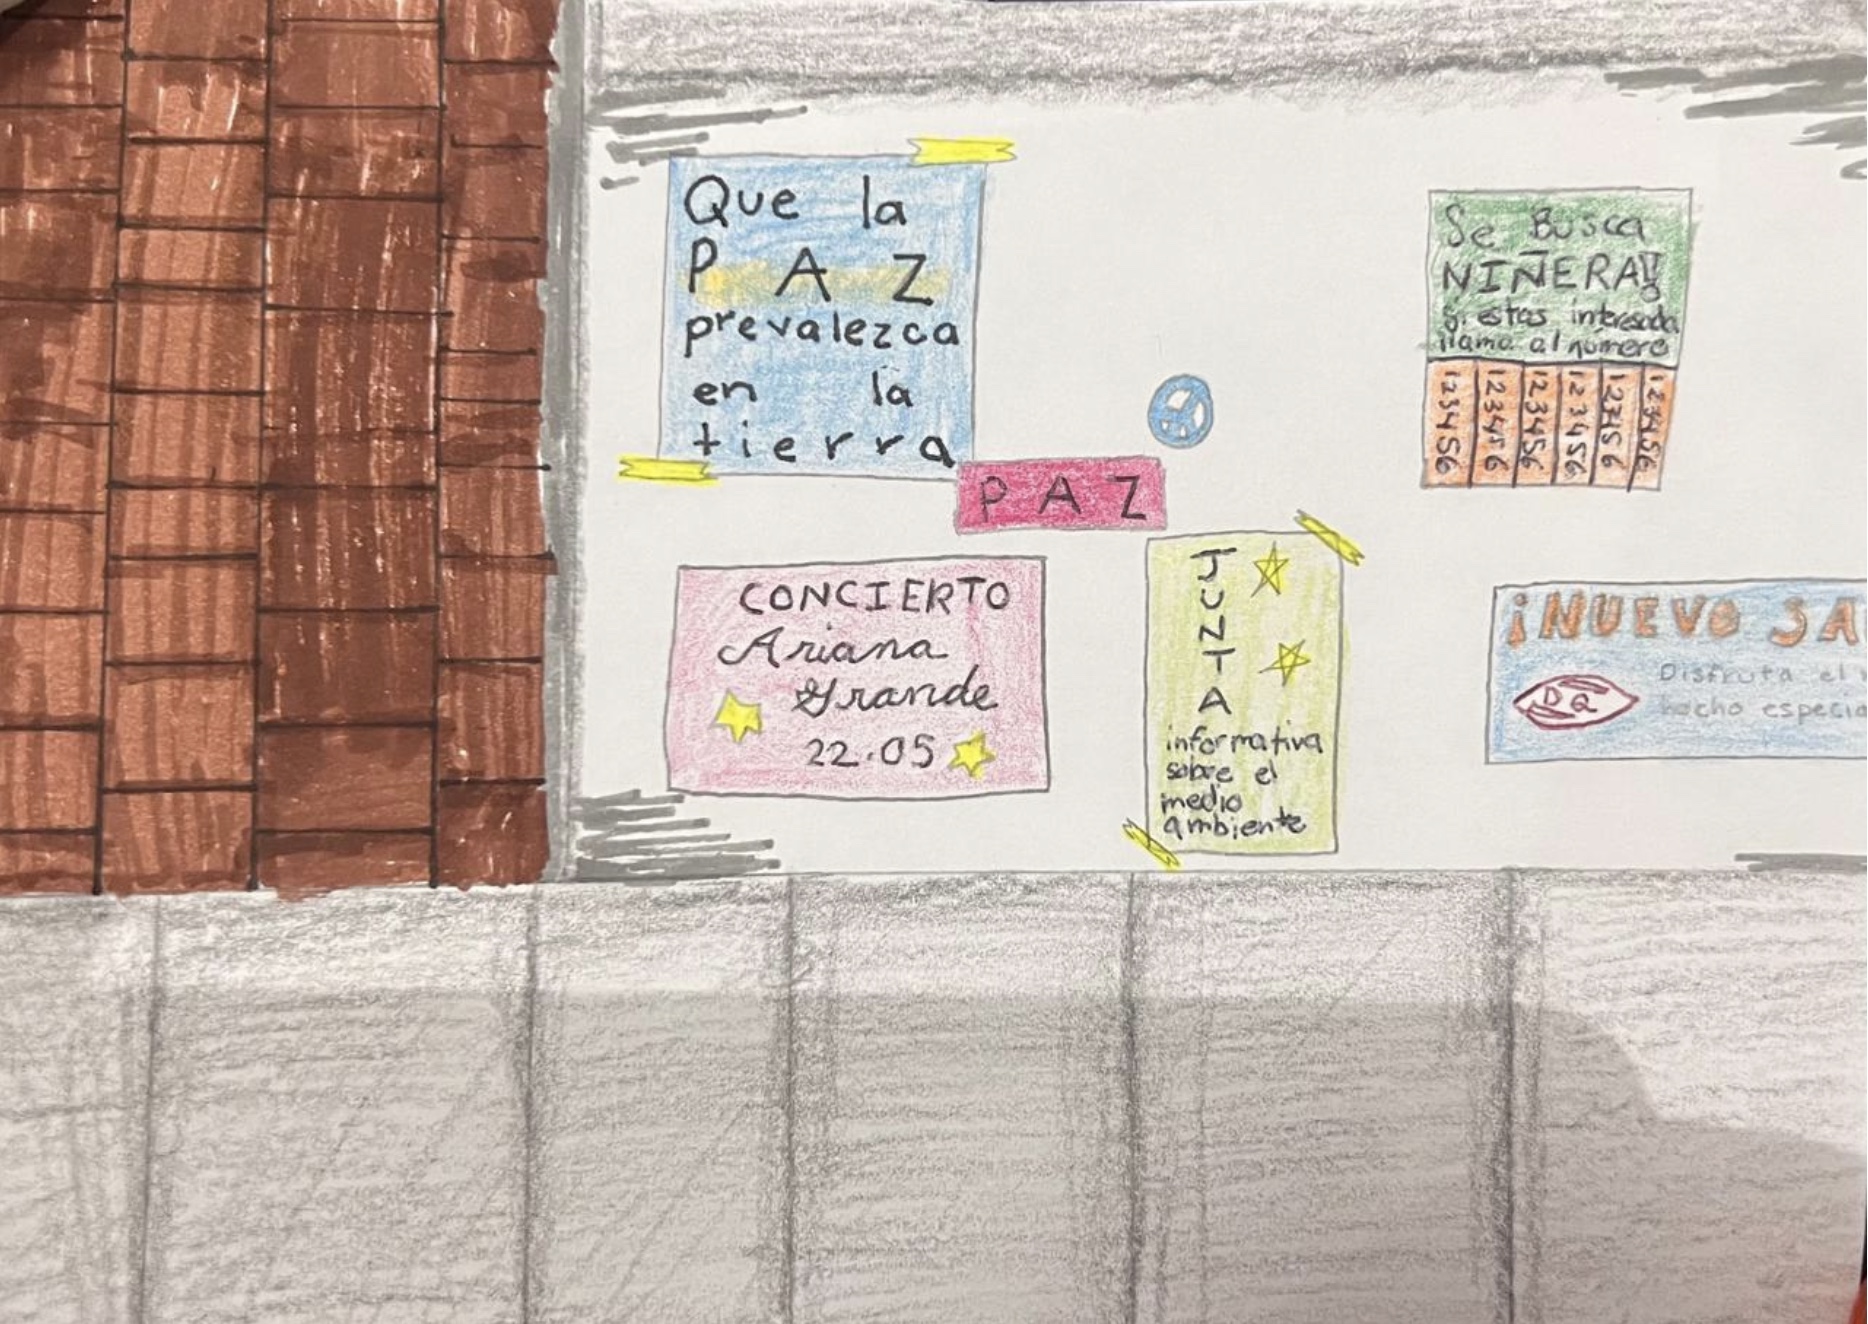 Que la
PAZ
prevalezca
en la
tierra
PAZ
CONCIERTO
Ariana
Grande
22.05
JUNTA
informativa
sobre el
medio
ambiente
Se Busca
NIÑERA!!
Si estas interesada
llama al numero
123456
123456
123456
123456
123456
123456
¡NUEVO SA
DQ
Disfruta el
hecho especia